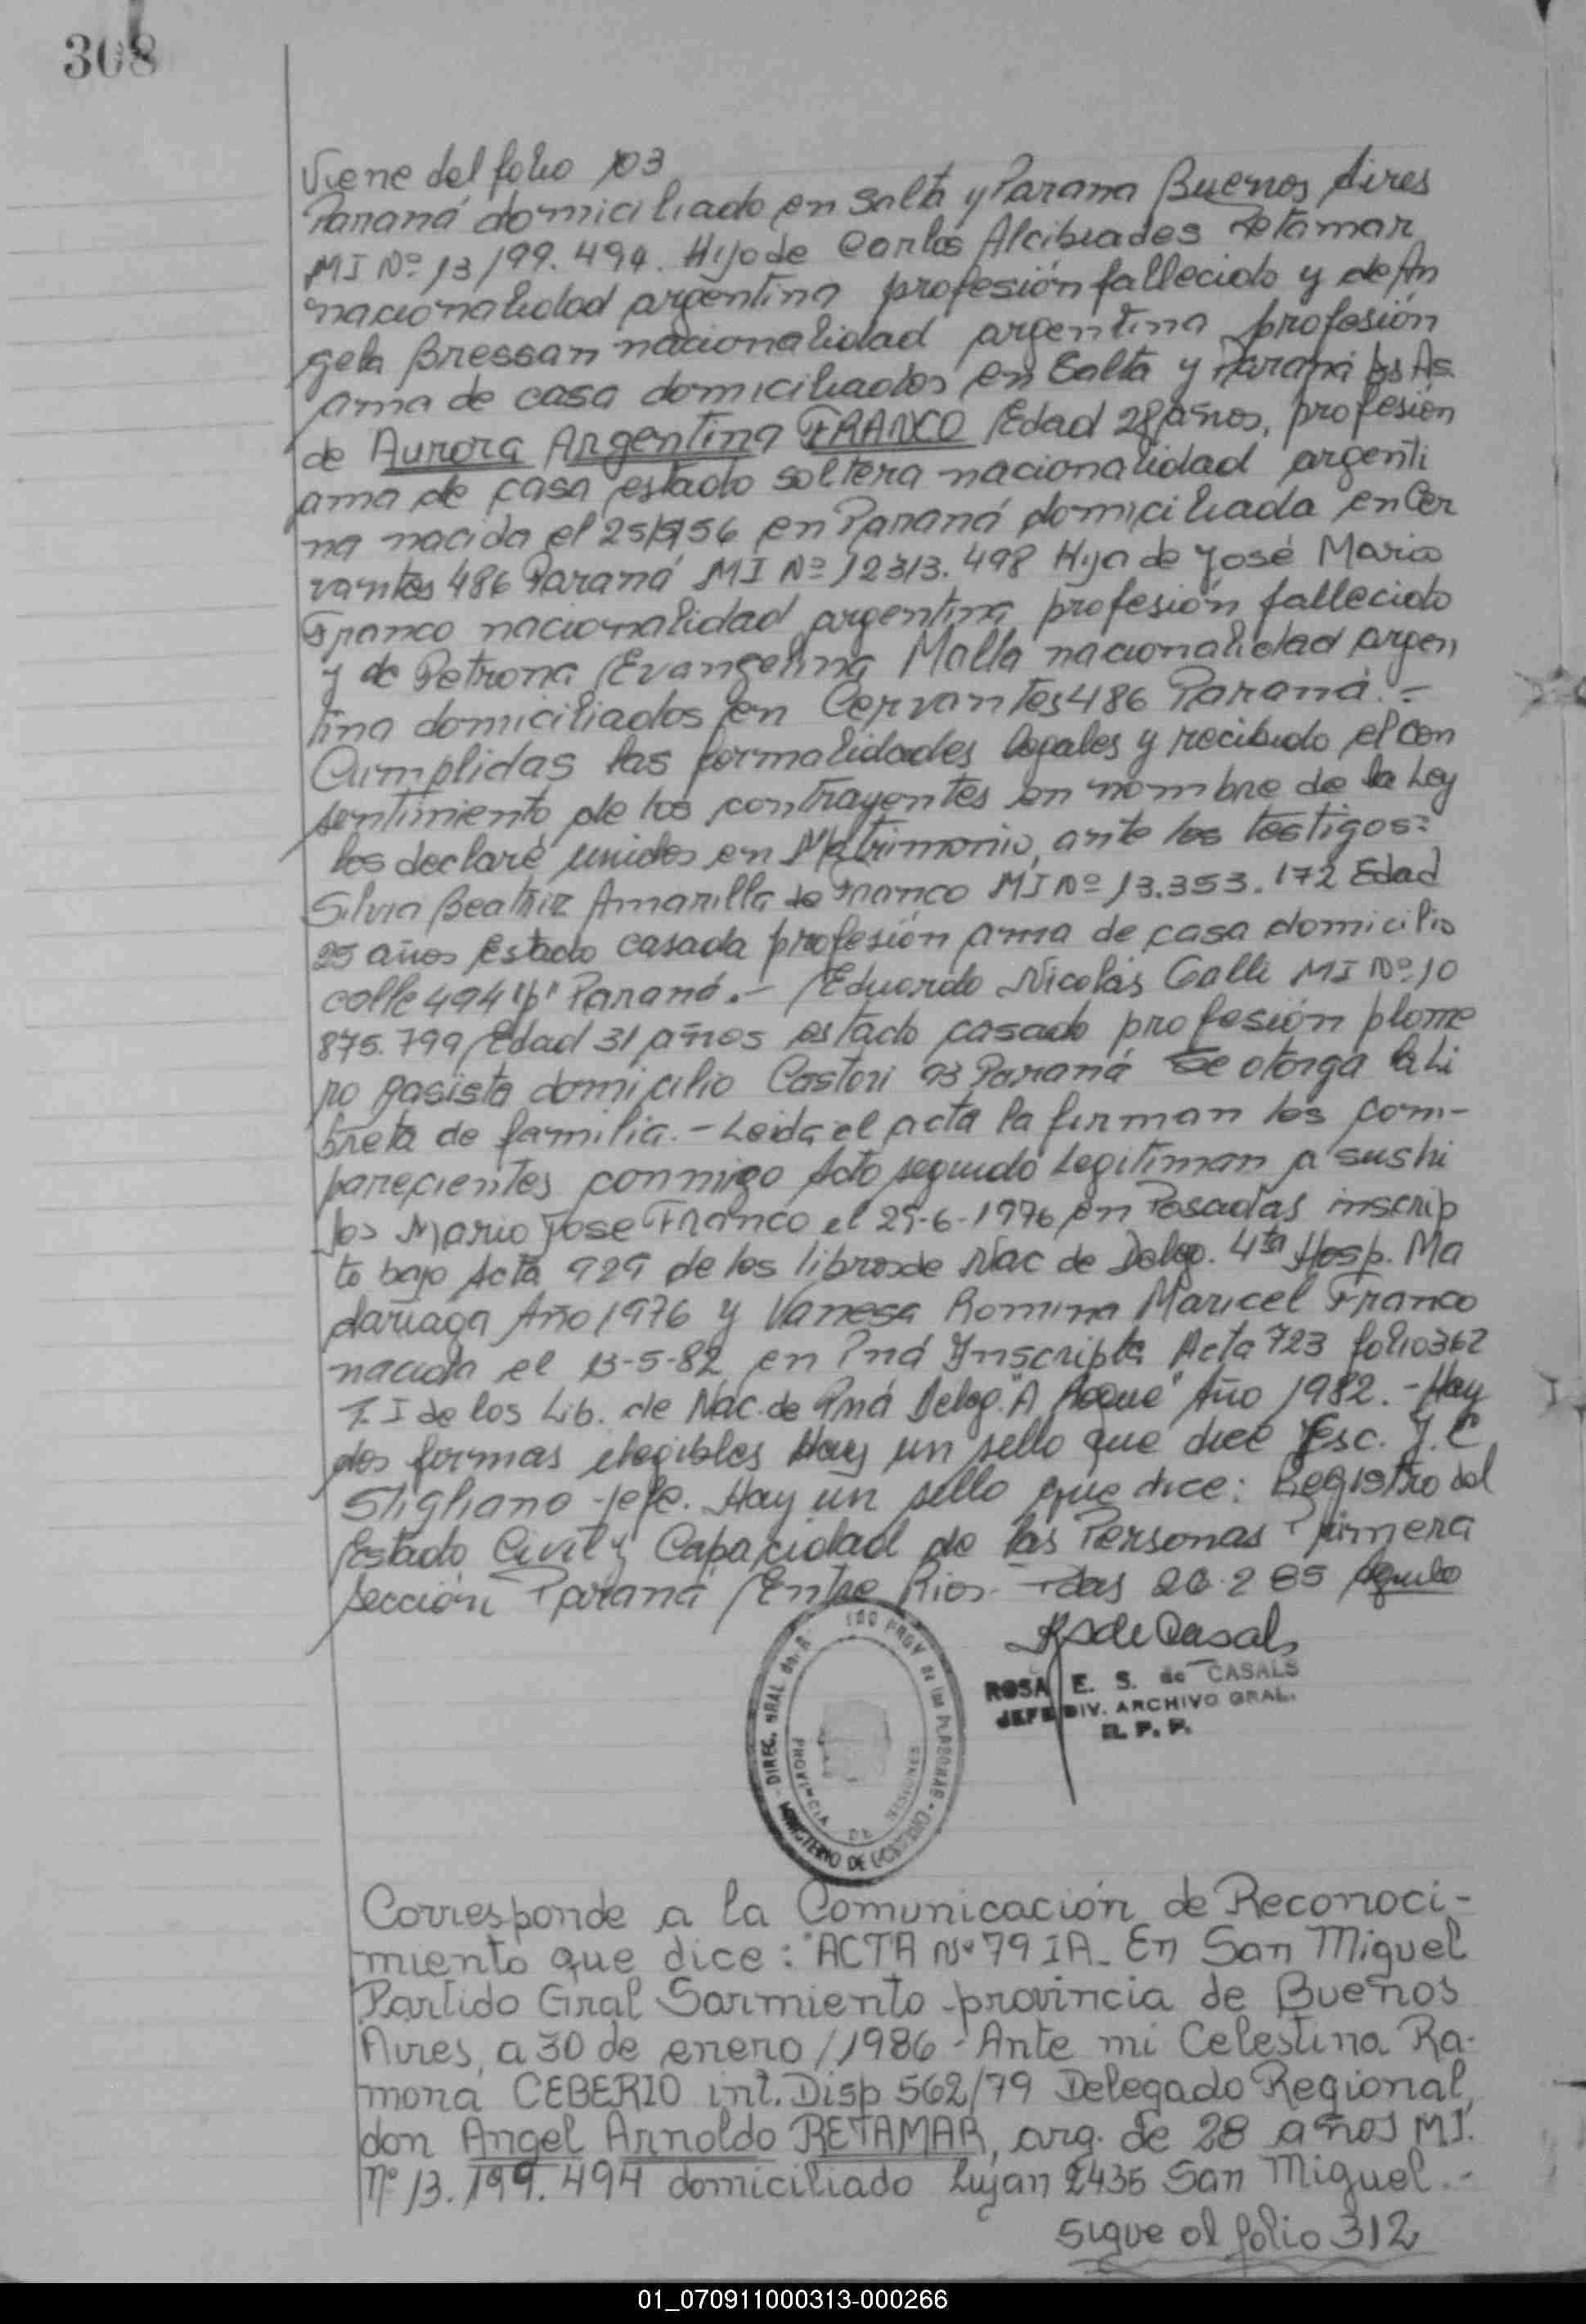 308
Viene del folio 103
Paraná domiciliado en Salta y Parana Buenos Aires
MI Nº 13199.494. Hijo de Carlos Alcibiades Retamar
nacionalidad argentina profesión fallecido y de An
gela Bressan nacionalidad argentina profesión
ama de casa domiciliados en Salta y Paraná Bs As.
de Aurora Argentina FRANCO Edad 28 años, profesión
ama de casa estado soltera nacionalidad argenti
na nacida el 25/9/56 en Paraná domiciliada en Cer
vantes 486 Paraná MI Nº 12313.498 Hija de José Mario
Franco nacionalidad argentina profesión fallecido
y de Petrona Evangelina Malla nacionalidad argen
tina domiciliados en Cervantes 486 Paraná.-
Cumplidas las formalidades legales y recibido el con
sentimiento de los contrayentes en nombre de la Ley
los declaré unidos en Matrimonio, ante los testigos:
Silvia Beatriz Amarilla de Franco MI Nº 13.353.172 Edad
25 años Estado casada profesión ama de casa domicilio
calle 494 "p" Paraná.- Eduardo Nicolás Galli MI Nº 10
875.799 Edad 31 años estado casado profesión plome
ro gasista domicilio Castori 93 Paraná Se otorga la Li
breta de familia.- Leida el acta la firman los com-
parecientes conmigo Acto seguido Legitiman a sus hi
jos Mario Jose Franco el 29-6-1976 en Posadas inscrip
to bajo Acta 929 de los libros de Nac de Deleg. 4ta Hosp. Ma
dariaga Año 1976 y Vanesa Romina Maricel Franco
nacida el 13-5-82 en Pná Inscripta Acta 723 folio 362
T. I de los Lib. de Nac. de Pná Deleg. "A Roque" Año 1982.- Hay
dos firmas ilegibles Hay un sello que dice Esc. J. C
Stigliano - Jefe. Hay un sello que dice: Registro del
Estado Civil y Capacidad de las Personas Primera
Sección Paraná Entre Rios.- Pdas 26.2 85
RS de Casals
ROSA E. S. de CASALS
JEFE DIV. ARCHIVO GRAL.
R. P. P.
DIREC. GRAL del R PROV de las PERSONAS - MINISTERIO DE GOBIERNO
PROVINCIA DE MISIONES
Corresponde a la Comunicación de Reconoci-
miento que dice: "ACTA Nº 79 IA - En San Miguel
Partido Gral Sarmiento provincia de Buenos
Aires, a 30 de enero /1986 - Ante mi Celestina Ra-
mona CEBERIO int. Disp 562/79 Delegado Regional,
don Angel Arnoldo RETAMAR, arg. de 28 años MI.
Nº 13.199.494 domiciliado Lujan 2435 San Miguel.-
sigue al folio 312
01_070911000313-000266